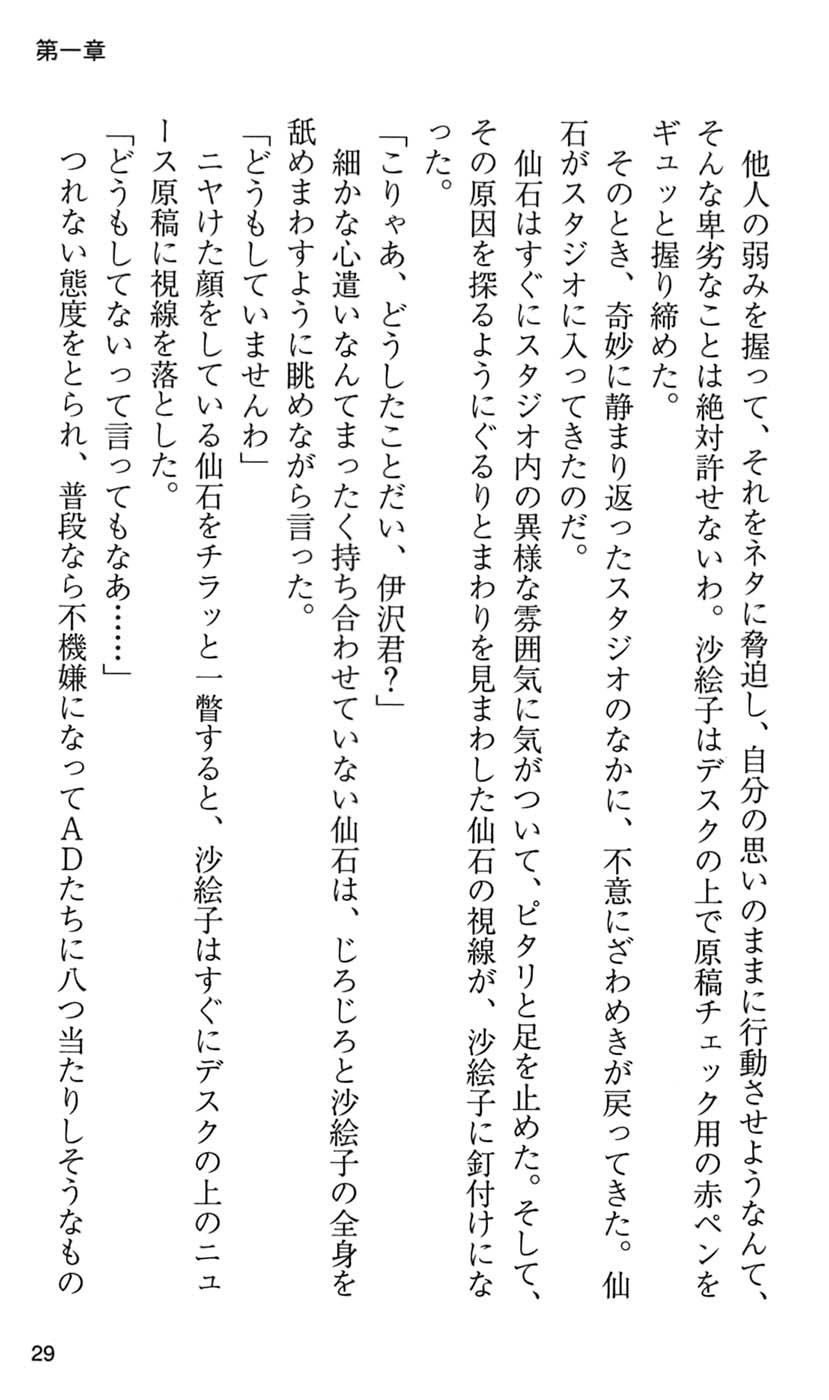 第一章
　他人の弱みを握って、それをネタに脅迫し、自分の思いのままに行動させようなんて、
そんな卑劣なことは絶対許せないわ。沙絵子はデスクの上で原稿チェック用の赤ペンを
ギュッと握り締めた。
　そのとき、奇妙に静まり返ったスタジオのなかに、不意にざわめきが戻ってきた。仙
石がスタジオに入ってきたのだ。
　仙石はすぐにスタジオ内の異様な雰囲気に気がついて、ピタリと足を止めた。そして、
その原因を探るようにぐるりとまわりを見まわした仙石の視線が、沙絵子に釘付けにな
った。
「こりゃあ、どうしたことだい、伊沢君？」
　細かな心遣いなんてまったく持ち合わせていない仙石は、じろじろと沙絵子の全身を
舐めまわすように眺めながら言った。
「どうもしていませんわ」
　ニヤけた顔をしている仙石をチラッと一瞥すると、沙絵子はすぐにデスクの上のニュ
ース原稿に視線を落とした。
「どうもしてないって言ってもなあ……」
　つれない態度をとられ、普段なら不機嫌になってＡＤたちに八つ当たりしそうなもの
29